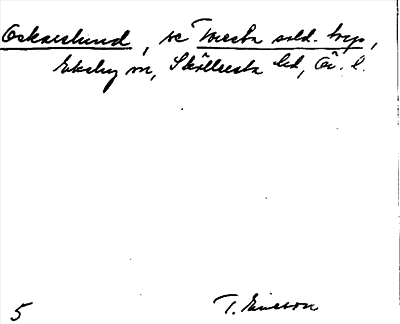 Oskarslund, se Tvesta sold. torp,
Ekeby sn, Sköllersta hd, Ör. l.
5 T. Ericsson